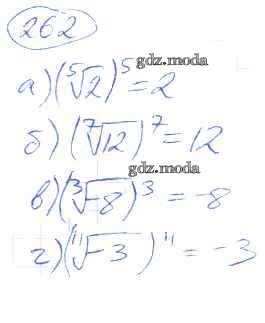 262
gdz.moda
а) (⁵√2)⁵ = 2
б) (⁷√12)⁷ = 12
gdz.moda
в) (³√-8)³ = -8
г) (¹¹√-3)¹¹ = -3